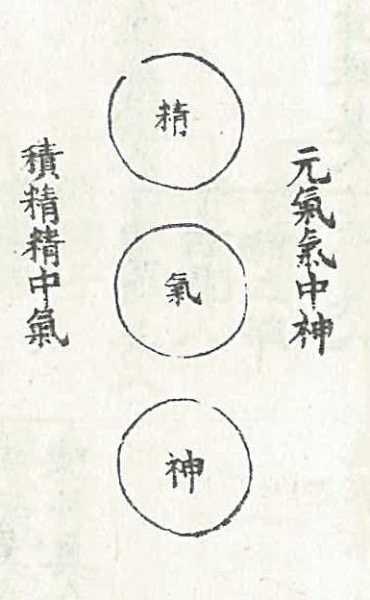 元氣氣中神
精
氣
神
積精精中氣